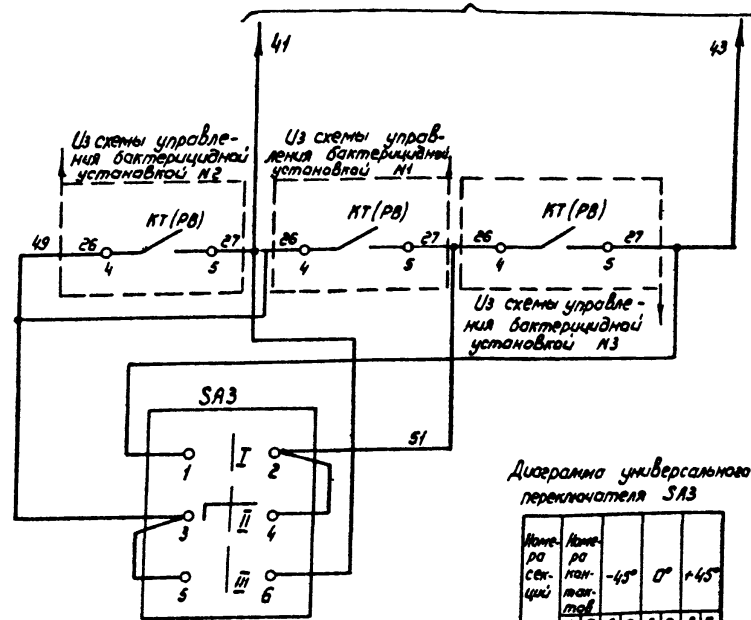 41
43
Из схемы управле-
ния бактерицидной
установкой №2
Из схемы управ-
ления бактерицидной
установкой №1
КТ(РВ)
КТ(РВ)
КТ(РВ)
49
26
27
26
27
26
27
4
5
4
5
4
5
Из схемы управле-
ния бактерицидной
установкой №3
SA3
51
1
I
2
3
II
4
5
III
6
Диаграмма универсального
переключателя SA3
Номе-
ра
сек-
ций
Номе-
ра
кон-
так-
тов
-45°
0°
+45°